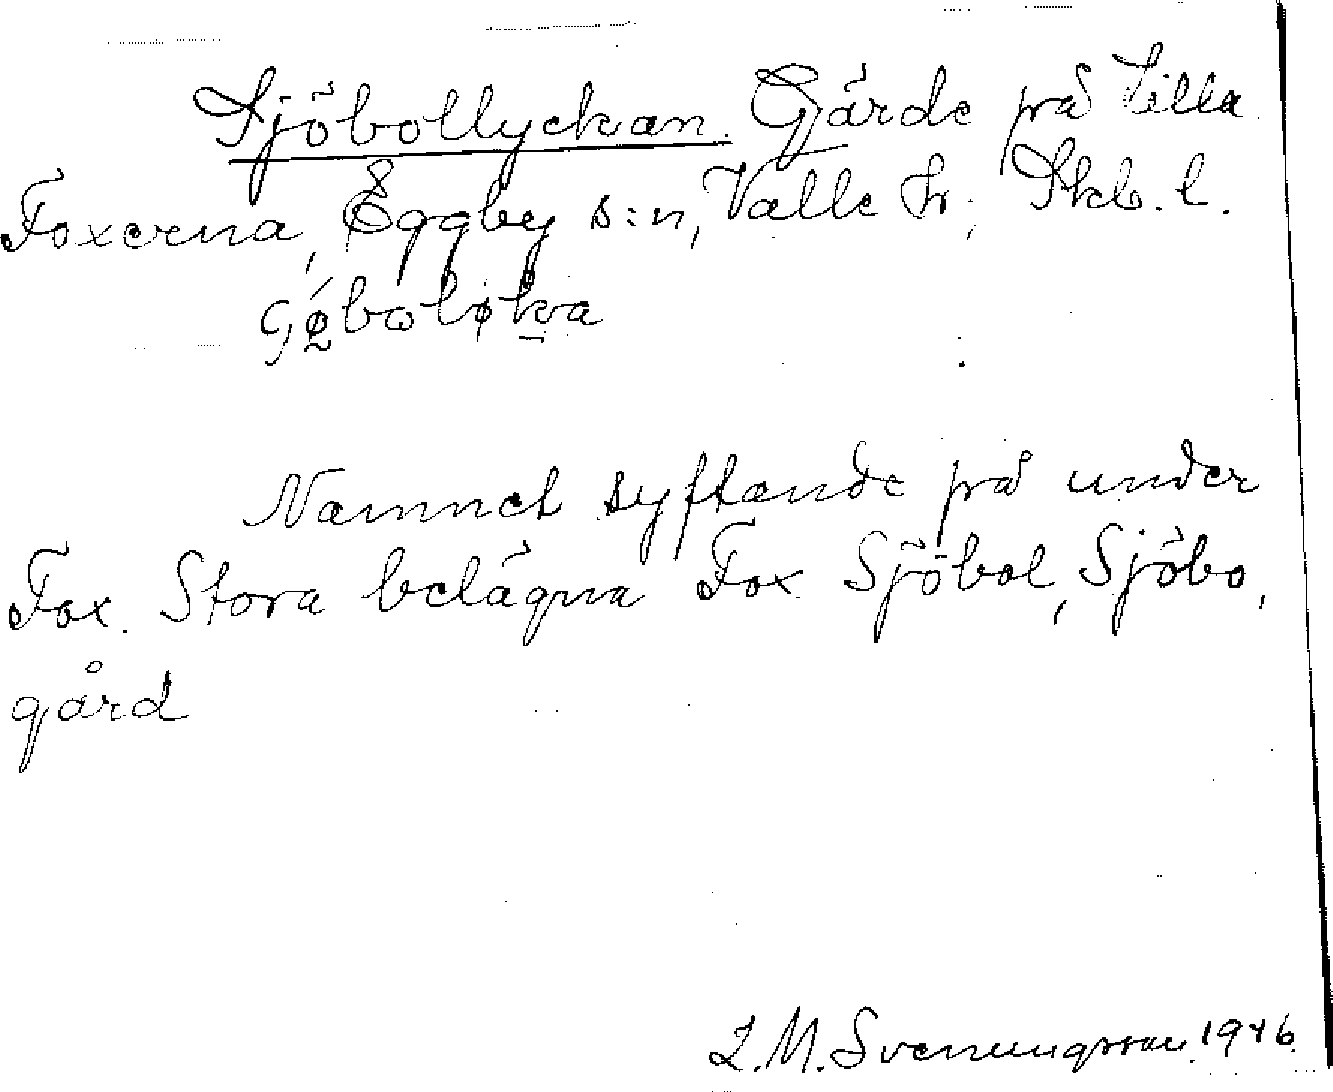 Sjöbollyckan. Gärde på Lilla
Foxerna, Eggby s:n, Valle hr; Skb. l.
Namnet syftande på under
Fox. Stora belägna Fox Sjöbol, Sjöbo,
gård
L.M. Svenungsson 1946